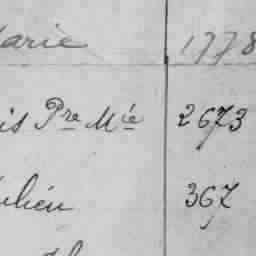 Marie 1778
is Pre Mie 2673
ulien 367